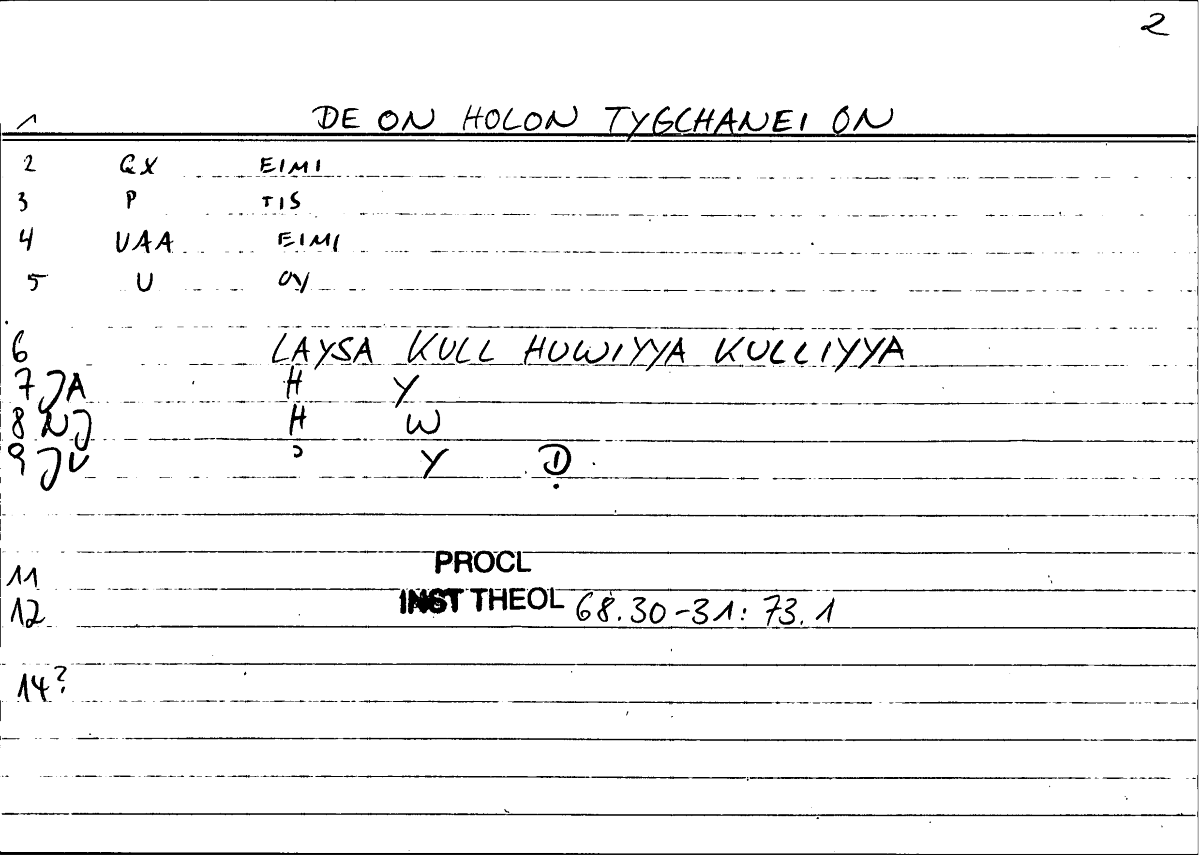 2
1 DE ON HOLON TYGCHANEI ON
2 GX EIMI
3 P TIS
4 UAA EIMI
5 U OY
6 LAYSA KULL HUWIYYA KULLIYYA
7 JA H Y
8 NJ H W
9 JU ʾ Y Ḍ
11 PROCL
12 INST THEOL 68.30-31: 73.1
14?